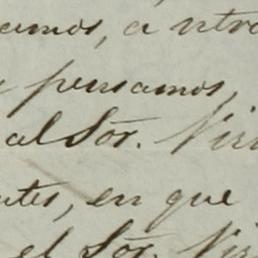 amos, a ntro
pensamos,
al Sõr. Vir
ntes, en que
el Sõr. Vir